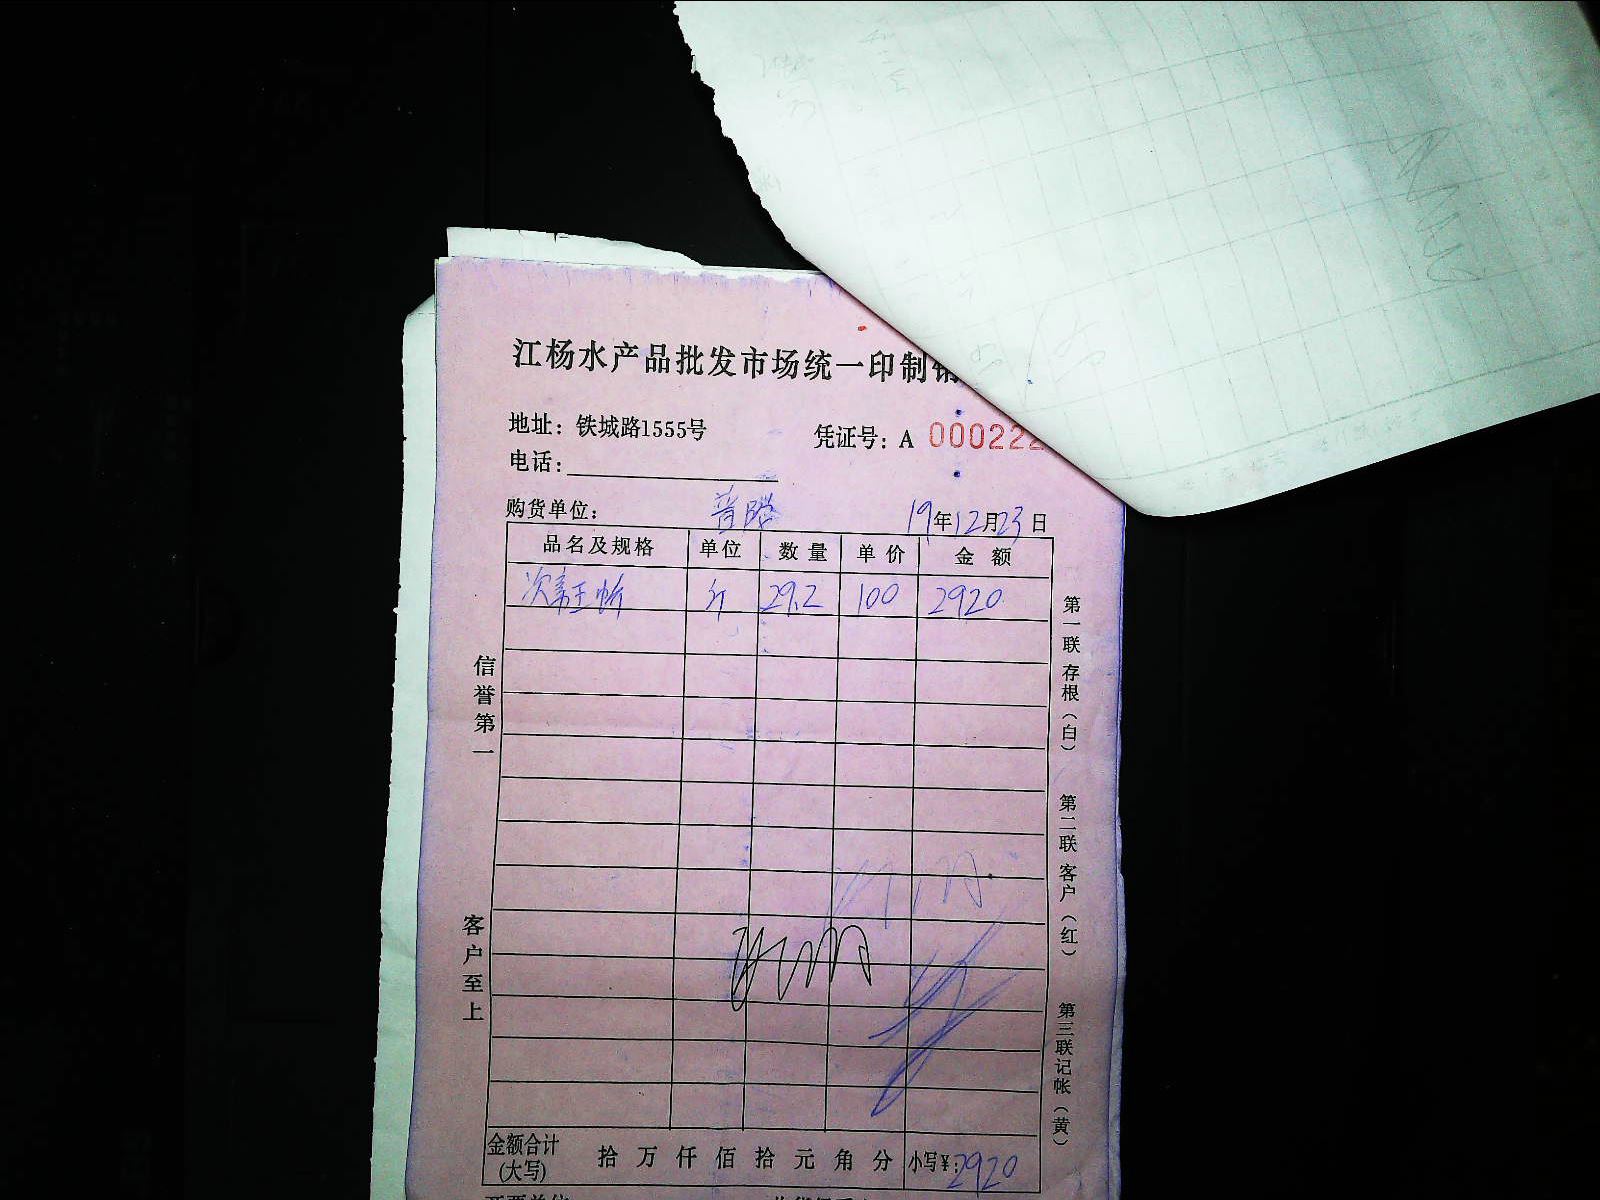 江杨水产品批发市场统一印制销
地址：铁城路1555号
凭证号：A 000222
电话：
购货单位：
19年12月23日
品名及规格 单位 数量 单价 金额
斤 29.2 100 2920
信誉第一
客户至上
第一联 存根（白）
第二联 客户（红）
第三联 记帐（黄）
金额合计
(大写) 拾 万 仟 佰 拾 元 角 分 小写¥：2920